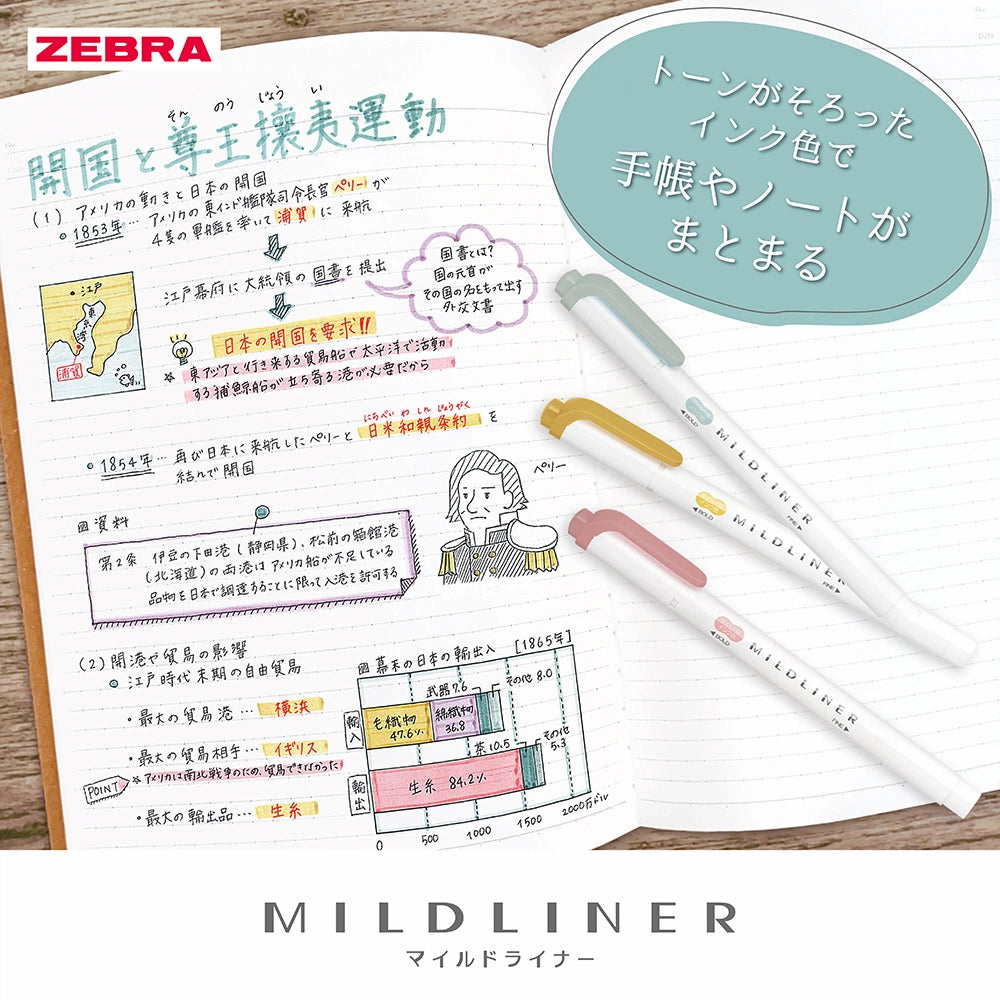 ZEBRA
トーンがそろった
インク色で
手帳やノートが
まとまる
そん のう じょう い
開国と尊王攘夷運動
(1) アメリカの動きと日本の開国
1853年… アメリカの東インド艦隊司令長官 ペリー が
4隻の軍艦を率いて 浦賀 に 来航
江戸幕府に大統領の国書を提出
国書とは?
国の元首が
その国の名をもって出す
外交文書
江戸
東京湾
浦賀
日本の開国を要求!!
☆ 東アジアと行き来する貿易船や太平洋で活動
する捕鯨船が立ち寄る港が必要だから
にちべい わ しん じょうやく
1854年… 再び日本に来航したペリーと 日米和親条約 を
結んで開国
ペリー
資料
第2条 伊豆の下田港(静岡県)、松前の箱館港
(北海道)の両港はアメリカ船が不足している
品物を日本で調達することに限って入港を許可する
(2) 開港や貿易の影響
江戸時代末期の自由貿易
・最大の貿易港… 横浜
・最大の貿易相手… イギリス
POINT
☆アメリカは南北戦争のため、貿易できなかった
・最大の輸出品… 生糸
図 幕末の日本の輸出入 [1865年]
武器7.6
その他 8.0
輸入
毛織物
47.6%
綿織物
36.8
茶10.5
その他
5.3
輸出
生糸 84.2%
0 500 1000 1500 2000万ドル
◀BOLD MILDLINER FINE▶
◀BOLD MILDLINER FINE▶
◀BOLD MILDLINER FINE▶
MILDLINER
マイルドライナー